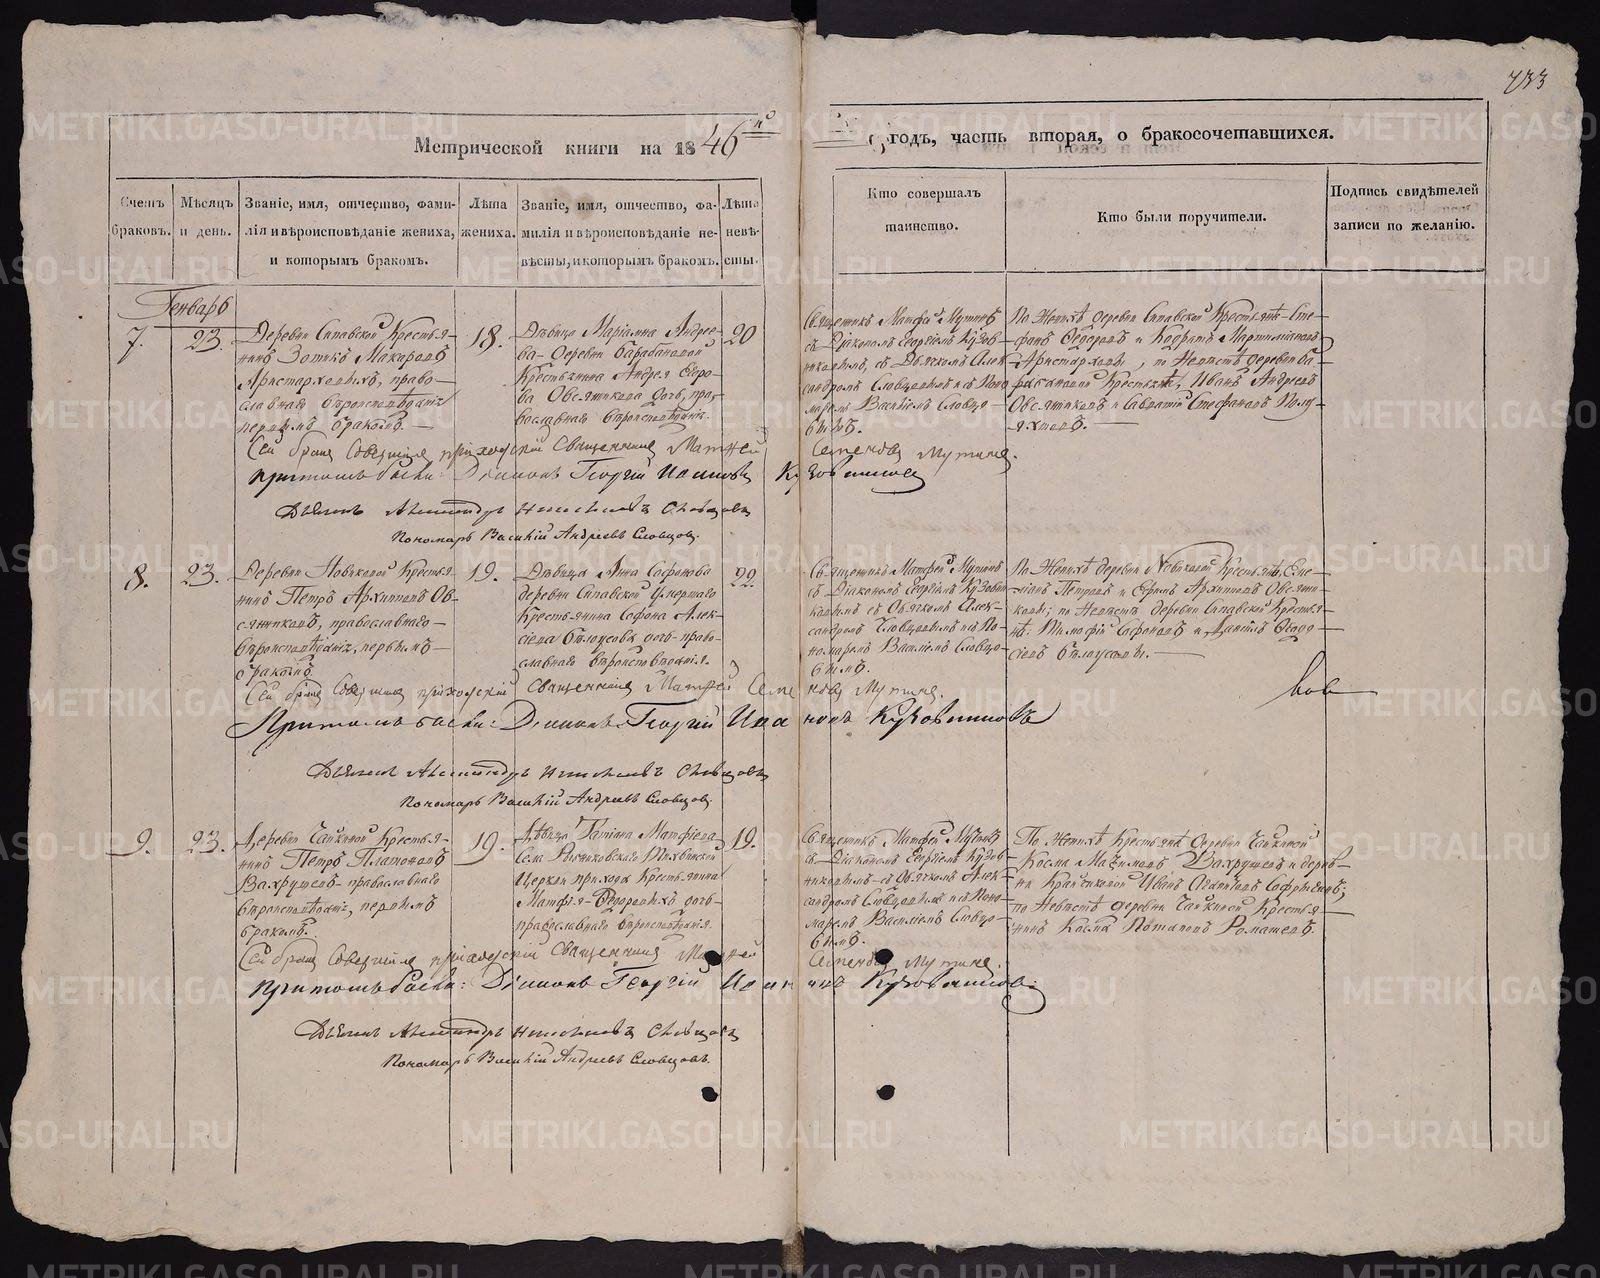 733
Метрической книги на 1846го
годъ, часть вторая, о бракосочетавшихся.
Счетъ браковъ.
Мѣсяцъ и день.
Званіе, имя, отчество, фами-
лія и вѣроисповѣданіе жениха,
и которымъ бракомъ.
Лѣта жениха.
Званіе, имя, отчество, фа-
милія и вѣроисповѣданіе не-
вѣсты, и которымъ бракомъ.
Лѣта невѣ-
сты.
Кто совершалъ
таинство.
Кто были поручители.
Подпись свидѣтелей
записи по желанію.
Генварь
7.
23.
Деревни Сипавской Крестья-
нинъ Зотикъ Макаровъ
Аристарховыхъ, право-
славнаго вѣроисповѣданія
первымъ бракомъ.
18.
Дѣвица Маріамна Андрее-
ва деревни Барабановой
Крестьянина Андрея Егоро-
ва Овсянникова дочь, пра-
вославнаго вѣроисповѣданія.
20
Священникъ Матфей Мутинъ
съ Діакономъ Георгіемъ Кузов-
никовымъ, съ Дьячкомъ Алек-
сандромъ Словцовымъ и съ Поно-
маремъ Василіемъ Словцо-
вымъ.
По Женихѣ деревни Сипавской Крестьяне Сте-
фанъ Ѳедоровъ и Кодратъ Мартиміановъ
Аристарховы, по Невѣстѣ деревни Ба-
рабановой Крестьяне, Иванъ Андреевъ
Овсянниковъ и Савватій Стефановъ Полу-
яхтовъ.
Сей бракъ совершилъ приходскій Священникъ Матфей Семеновъ Мутинъ.
При томъ были: Діаконъ Георгій Ивановъ Кузовниковъ
Дьячекъ Александръ Николаевъ Словцовъ
Пономарь Василій Андреевъ Словцовъ.
8.
23.
Деревни Новиковой Крестья-
нинъ Петръ Архиповъ Ов-
сянниковъ, православнаго
вѣроисповѣданія, первымъ
бракомъ
19.
Дѣвица Анна Софонова
деревни Сипавской умершаго
Крестьянина Софона Алек-
сіева Бѣлоусова дочь право-
славнаго вѣроисповѣданія.
22.
Священникъ Матфей Мутинъ
съ Діакономъ Георгіемъ Кузовни-
ковымъ съ Дьячкомъ Алек-
сандромъ Словцовымъ и съ По-
номаремъ Василіемъ Словцо-
вымъ.
По Женихѣ деревни Новиковой Крестьяне, Еме-
ліанъ Петровъ и Ефимъ Архиповъ Овсянни-
ковы; по Невѣстѣ деревни Сипавской Крестья-
не: Тимофій Софоновъ и Даніилъ Ѳеодо-
сіевъ Бѣлоусовы.
Сей бракъ совершилъ приходскій Священникъ Матфей Семеновъ Мутинъ.
При томъ были: Діаконъ Георгій Ивановъ Кузовниковъ
Дьячекъ Александръ Николаевъ Словцовъ
Пономарь Василій Андреевъ Словцовъ.
9.
23.
Деревни Чайкиной Крестья-
нинъ Петръ Платоновъ
Вахрушевъ православнаго
вѣроисповѣданія, первымъ
бракомъ.
19.
Дѣвица Татіана Матфіева
Церкви прихода Крестьянина
Матфія Ѳедоровыхъ дочь
православнаго вѣроисповѣданія.
19.
Священникъ Матфей Мутинъ
съ Діакономъ Георгіемъ Кузов-
никовымъ съ Дьячкомъ Алек-
сандромъ Словцовымъ и съ Поно-
маремъ Василіемъ Словцо-
вымъ.
По Женихѣ Крестьяне деревни Чайкиной
Косма Максимовъ Вахрушевъ и дерев-
ни Крайчиковой Иванъ
по Невѣстѣ деревни Чайкиной Крестья-
нинъ Косма Потаповъ Ромашевъ.
Сей бракъ совершилъ приходскій Священникъ Матфей Семеновъ Мутинъ.
При томъ были: Діаконъ Георгій Ивановъ Кузовниковъ.
Дьячекъ Александръ Николаевъ Словцовъ
Пономарь Василій Андреевъ Словцовъ.
METRIKI.GASO-URAL.RU